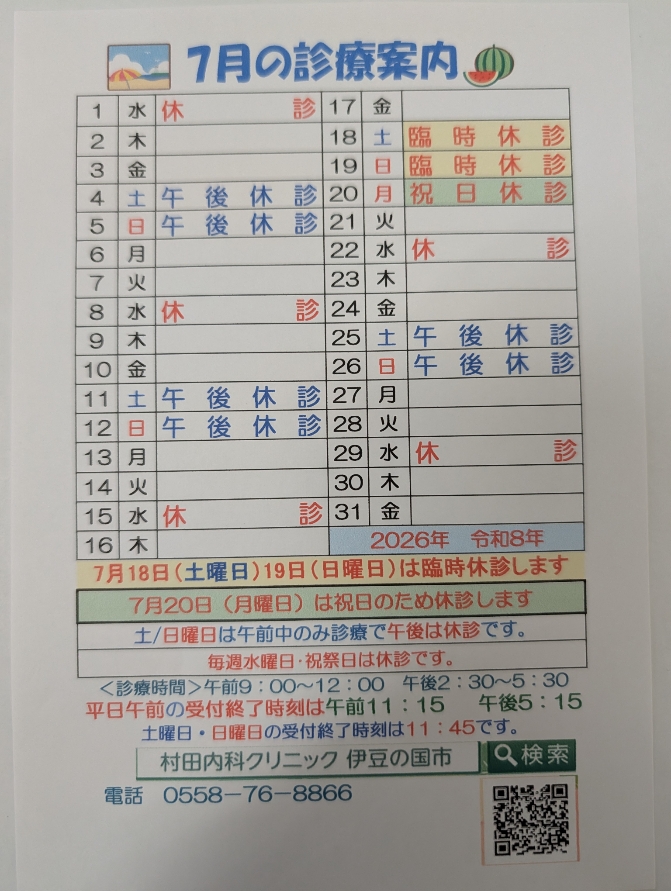 7月の診療案内
1 水 休診
2 木
3 金
4 土 午後休診
5 日 午後休診
6 月
7 火
8 水 休診
9 木
10 金
11 土 午後休診
12 日 午後休診
13 月
14 火
15 水 休診
16 木
17 金
18 土 臨時休診
19 日 臨時休診
20 月 祝日休診
21 火
22 水 休診
23 木
24 金
25 土 午後休診
26 日 午後休診
27 月
28 火
29 水 休診
30 木
31 金
2026年 令和8年
7月18日(土曜日)19日(日曜日)は臨時休診します
7月20日(月曜日)は祝日のため休診します
土/日曜日は午前中のみ診療で午後は休診です。
毎週水曜日・祝祭日は休診です。
<診療時間>午前9:00~12:00 午後2:30~5:30
平日午前の受付終了時刻は午前11:15 午後5:15
土曜日・日曜日の受付終了時刻は11:45です。
村田内科クリニック 伊豆の国市 検索
電話 0558-76-8866